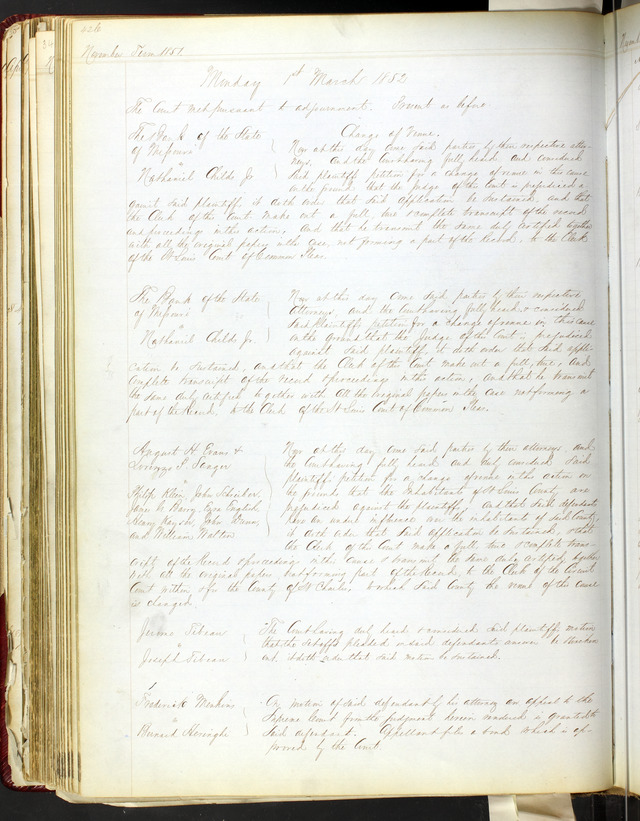 326
November Term 1851
Monday 1st March 1852
The Court met pursuant to adjournment. Present as before
The Bank of the State
of Missouri
Nathaniel Childs Jr.
Change of Venue.
Now at this day come said parties by their respective attor-
neys, and the Court having fully heard and considered
said plaintiff petition for a change of venue in this cause
on the ground that the Judge of this Court is prejudiced a-
gainst said plaintiff, it doth order that said application be sustained, and that
the Clerk of this Court make out a full, true & complete transcript of the record
and proceedings in this action, and that he transmit the same duly certified together
with all the original papers in the case, not forming a part of the Record, to the Clerk
of the St Louis Court of Common Pleas.
The Bank of the State
of Missouri
Nathaniel Childs Jr.
Now at this day come said parties by their respective
Attorneys, and the Court having fully heard & considered
said Plaintiffs petition for a change of venue in this cause
on the ground that the Judge of this Court is prejudiced
against said plaintiff it doth order that said appli-
cation be sustained, and that the Clerk of this Court make out a full, true, and
complete transcript of the record & proceedings in this action, and that he transmit
the same duly certified together with all the original papers in the case not forming a
part of the Record, to the Clerk of the St Louis Court of Common Pleas.
August H. Evans &
Lorenzo P. Sanger
vs
Philip Klein, John Schreiber,
James N. Barry, Ezra English
Henry Kayser, John Dunn,
and William Walton
Now at this day come said parties by their attorneys, and
the Court having fully heard and duly considered said
plaintiffs petition for a change of venue in this action on
the grounds that the inhabitants of St Louis County are
prejudiced against the plaintiffs and that said defendants
have an undue influence over the inhabitants of said County,
it doth order that said application be sustained, & that
the Clerk of this Court make a full true & complete trans-
cript of the Record & proceedings in this cause & transmit the same duly certified, together
with all the original papers not forming part of the Record, to the Clerk of the Circuit
Court within & for the County of St Charles, to which said County the venue of this cause
is changed.
Jerome Tebeau
vs
Joseph Tebeau
The Court having duly heard & considered said plaintiffs motion
that the set off pleaded in said defendants answer be stricken
out, it doth order that said motion be sustained.
Frederick Menkens
vs
Bernard
On motion of said defendant by his attorney an appeal to the
Supreme Court from the judgment herein rendered is granted to
said defendant. Appellant files a bond which is ap-
proved by the Court